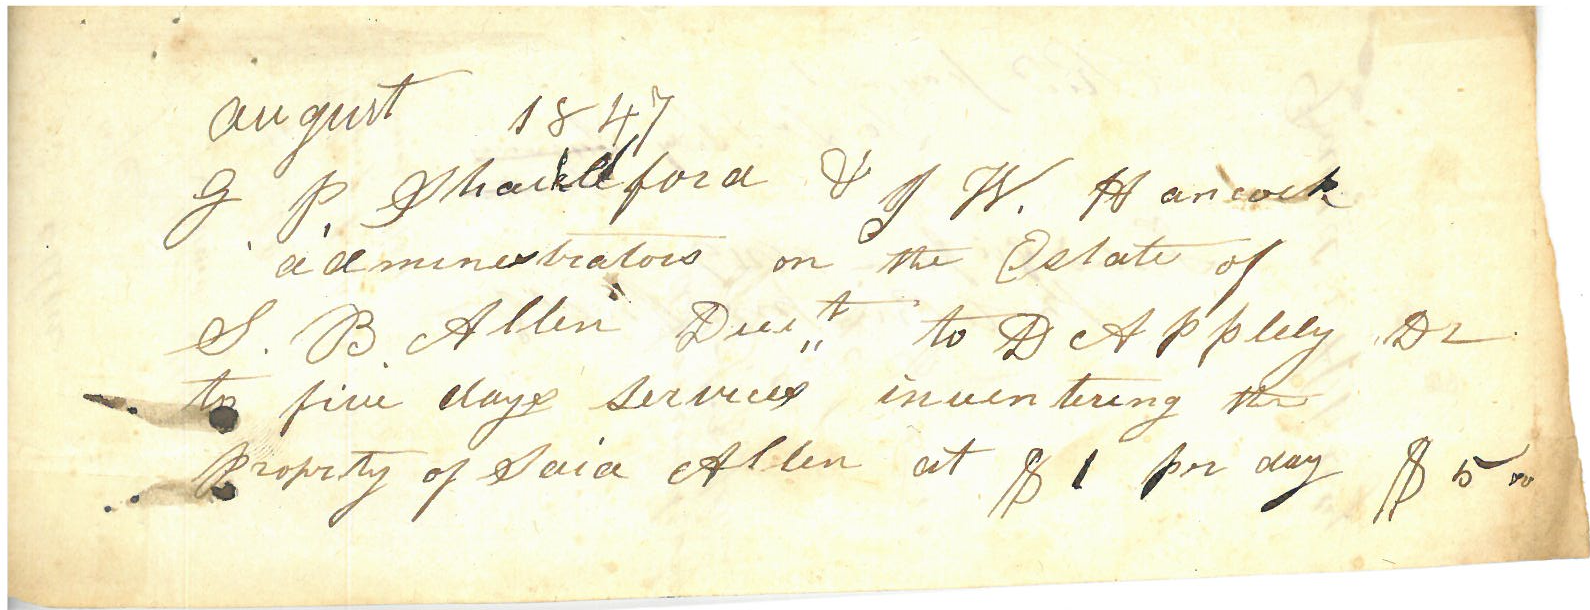 august 1847
G P Shackelford & J W. Hancock
administrators on the Estate of
S. B. Allen to D Applely Dr
to five days services inventering the
property of Said Allen at $1 pr day $5 00